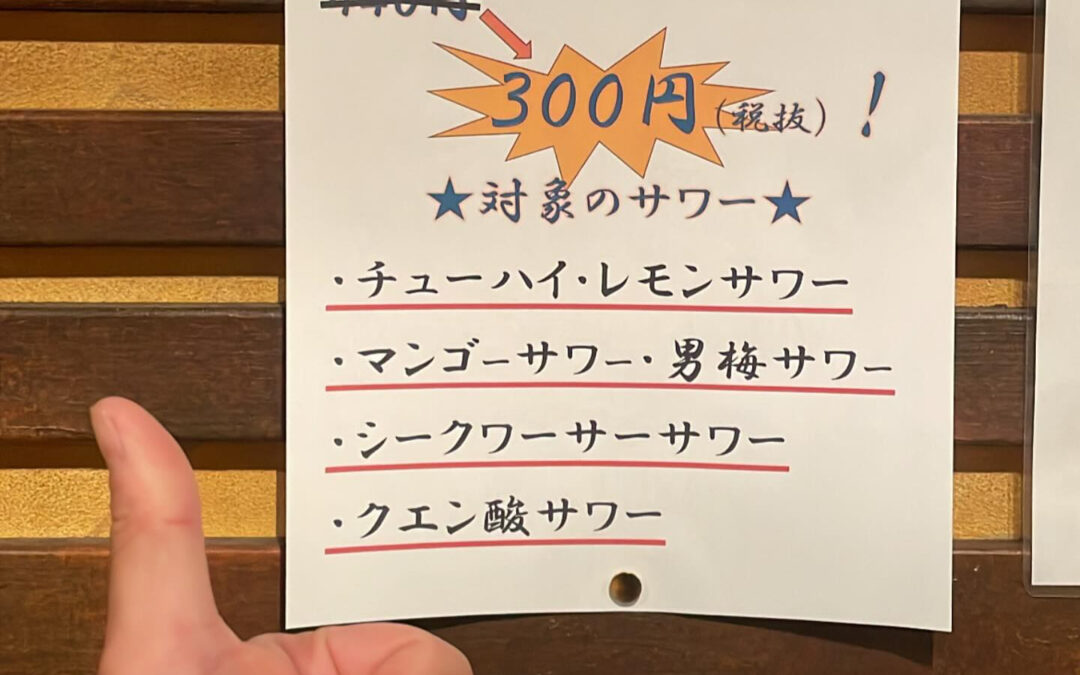 300円(税抜)!
★対象のサワー★
・チューハイ・レモンサワー
・マンゴーサワー・男梅サワー
・シークワーサーサワー
・クエン酸サワー